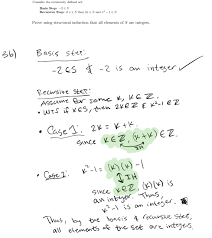 Consider the recursively defined set:
Basis Step: -2 ∈ S
Recursive Step: if k ∈ S then 2k ∈ S and k² - 1 ∈ S
Prove using structural induction that all elements of S are integers.
3b) Basis step:
-2 ∈ S & -2 is an integer ✓
Recursive step:
Assume for some k, k ∈ Z.
• WTS if k ∈ S, then 2k ∈ Z & k²-1 ∈ Z
• Case 1: 2k = k + k
since k ∈ Z, (k+k) ∈ Z.
• Case 2: k²-1 = (k)(k) - 1
↓ IH
since k ∈ Z, (k)(k) is
an integer. Thus,
k²-1 is an integer.
Thus, by the basis & recursive step,
all elements of the set are integers.